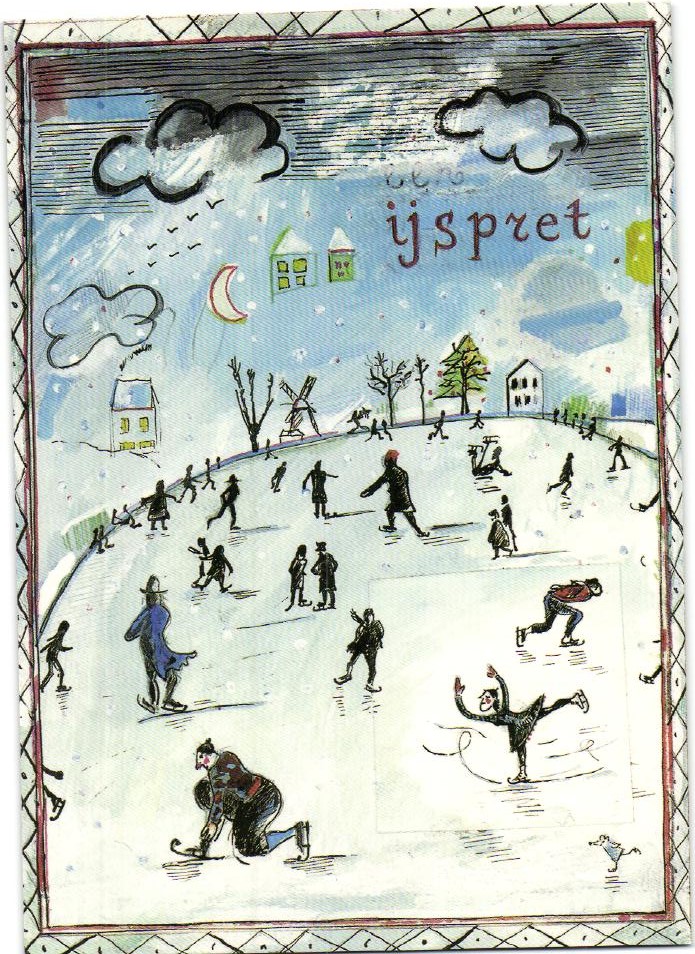 een
ijspret